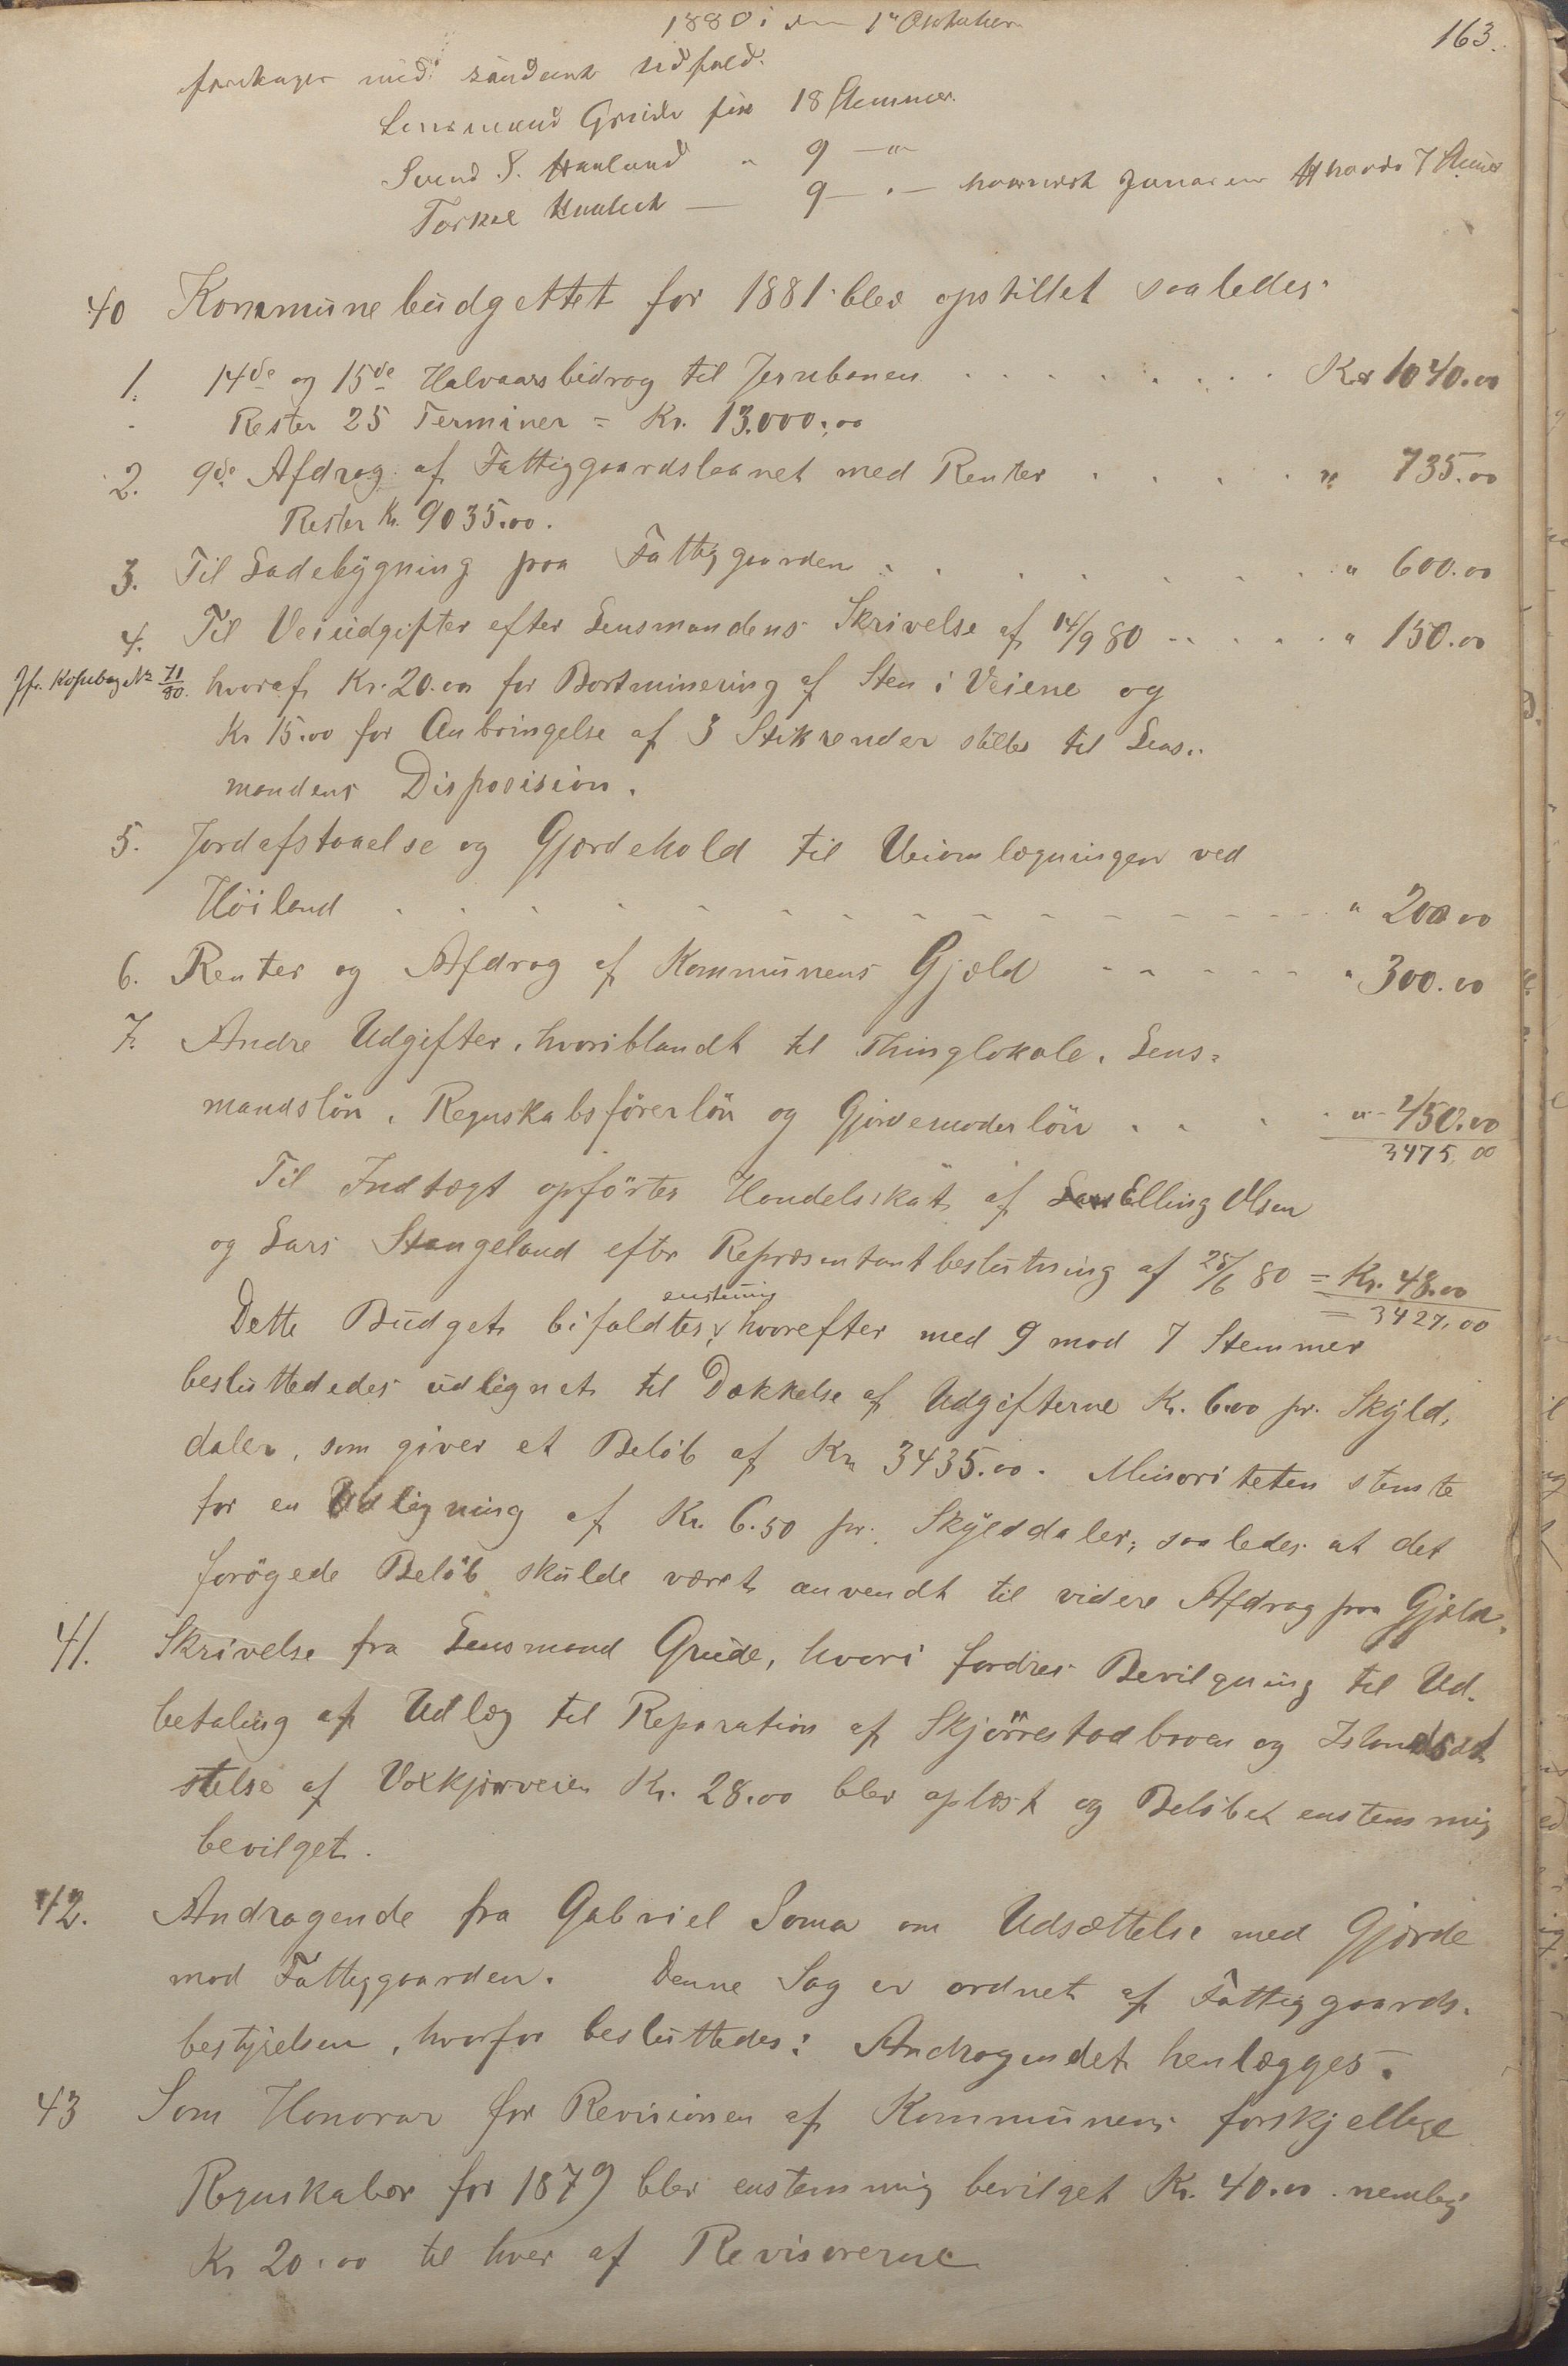 1880 i den 1ste Oktober
163.
foretages med saadant Udfald.
Lensmand Grude fik 18 Stemmer.
Svend S. Haaland " 9 —"—
Torkel — 9 —"— hvornæst havde 7 Stemer
40 Kommunebudgettet for 1881 blev opstillet saaledes:
1. 14de og 15de Halvaarsbidrag til Jernbanen . . . . . . . . Kr 1040.00
Rester 25 Terminer = Kr. 13.000.00
2. 9de Afdrag af Fattiggaardslaanet med Renter . . . . " 735.00
Rester Kr. 9035.00.
3. Til Ladebygning paa Fattiggaarden . . . . . . . . " 600.00
4. Til Veiudgifter efter Lensmandens Skrivelse af 14/9 80 . . . . . " 150.00
Jfr. Kopibog No 71/80. hvoraf Kr. 20.00 for Bortminering af Sten i Veiene og
Kr 15.00 for Anbringelse af 3 Stikrender stilles til Lens-
mandens Disposision.
5. Jordafstaaelse og Gjærdehold til Veiomlægningen ved
Höiland . . . . . . . . . . . . . . " 200 00
6. Renter og Afdrag af Kommunens Gjæld - - - - - " 300.00
7. Andre Udgifter, hvoriblandt til Thinglokale, Lens-
mandslön, Regnskabsförerlön og Gjordemoderlön . . . . " 450.00
3475.00
Til Indtægt opförtes Handelsskat af Lars Elling Olsen
og Lars Stangeland efter Repræsentantbeslutning af 25/6 80 = Kr. 48.00
= 3427.00
enstemig
Dette Budget bifaldtes, hvorefter med 9 mod 7 Stemmer
besluttededes udlignet til Dækkelse af Udgifterne Kr. 6.00 pr. Skyld-
daler, som giver et Belöb af Kr 3435.00. Minoriteten stemte
for en Udligning af Kr. 6.50 pr. Skylddaler, saaledes at det
forögede Belöb skulde været anvendt til videre Afdrag paa Gjæld.
41. Skrivelse fra Lensmand Grude, hvori fordres Bevilgning til Ud-
betaling af Udlæg til Reparation af Skjörrestadbroen og
stelse af Voxkjærveien Kr. 28.00 blev oplæst og Belöbet enstemmig
bevilget.
42. Andragende fra Gabriel Soma om Udsættelse med Gjærde
mod Fattiggaarden. Denne Sag er ordnet af Fattiggaards-
bestyrelsen, hvorfor besluttedes: Andragendet henlægges.
43 Som Honorar for Revisionen af Kommunens forskjellige
Regnskaber for 1879 blev enstemmig bevilget Kr. 40.00 nemlig
Kr 20.00 til hver af Revisorerne